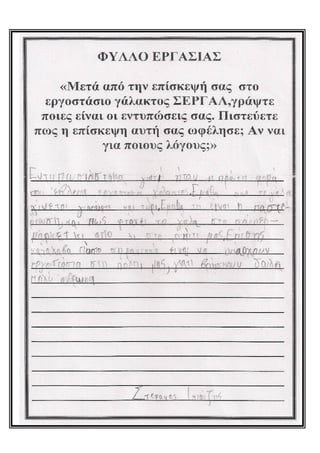 ΦΥΛΛΟ ΕΡΓΑΣΙΑΣ
«Μετά από την επίσκεψή σας στο
εργοστάσιο γάλακτος ΣΕΡΓΑΛ,γράψτε
ποιες είναι οι εντυπώσεις σας. Πιστεύετε
πως η επίσκεψη αυτή σας ωφέλησε; Αν ναι
για ποιους λόγους;»
Εντυπωσιάστηκα γιατί ήταν η πρώτη φορά
που έβλεπα εργοστάσιο γάλακτος. Έμαθα πως το γάλα
γίνεται γιαούρτι και τυρί, έμαθα τι είναι η παστε-
ρίωση και πως φτάνει το γάλα στο σούπερ-
μάρκετ και από κει στο σπίτι μας. Επίσης
κατάλαβα πόσο σημαντικό είναι να υπάρχουν
εργοστάσια στη πόλη μας, γιατί βρίσκουν δουλειά
πολλοί άνθρωποι
Στέφανος